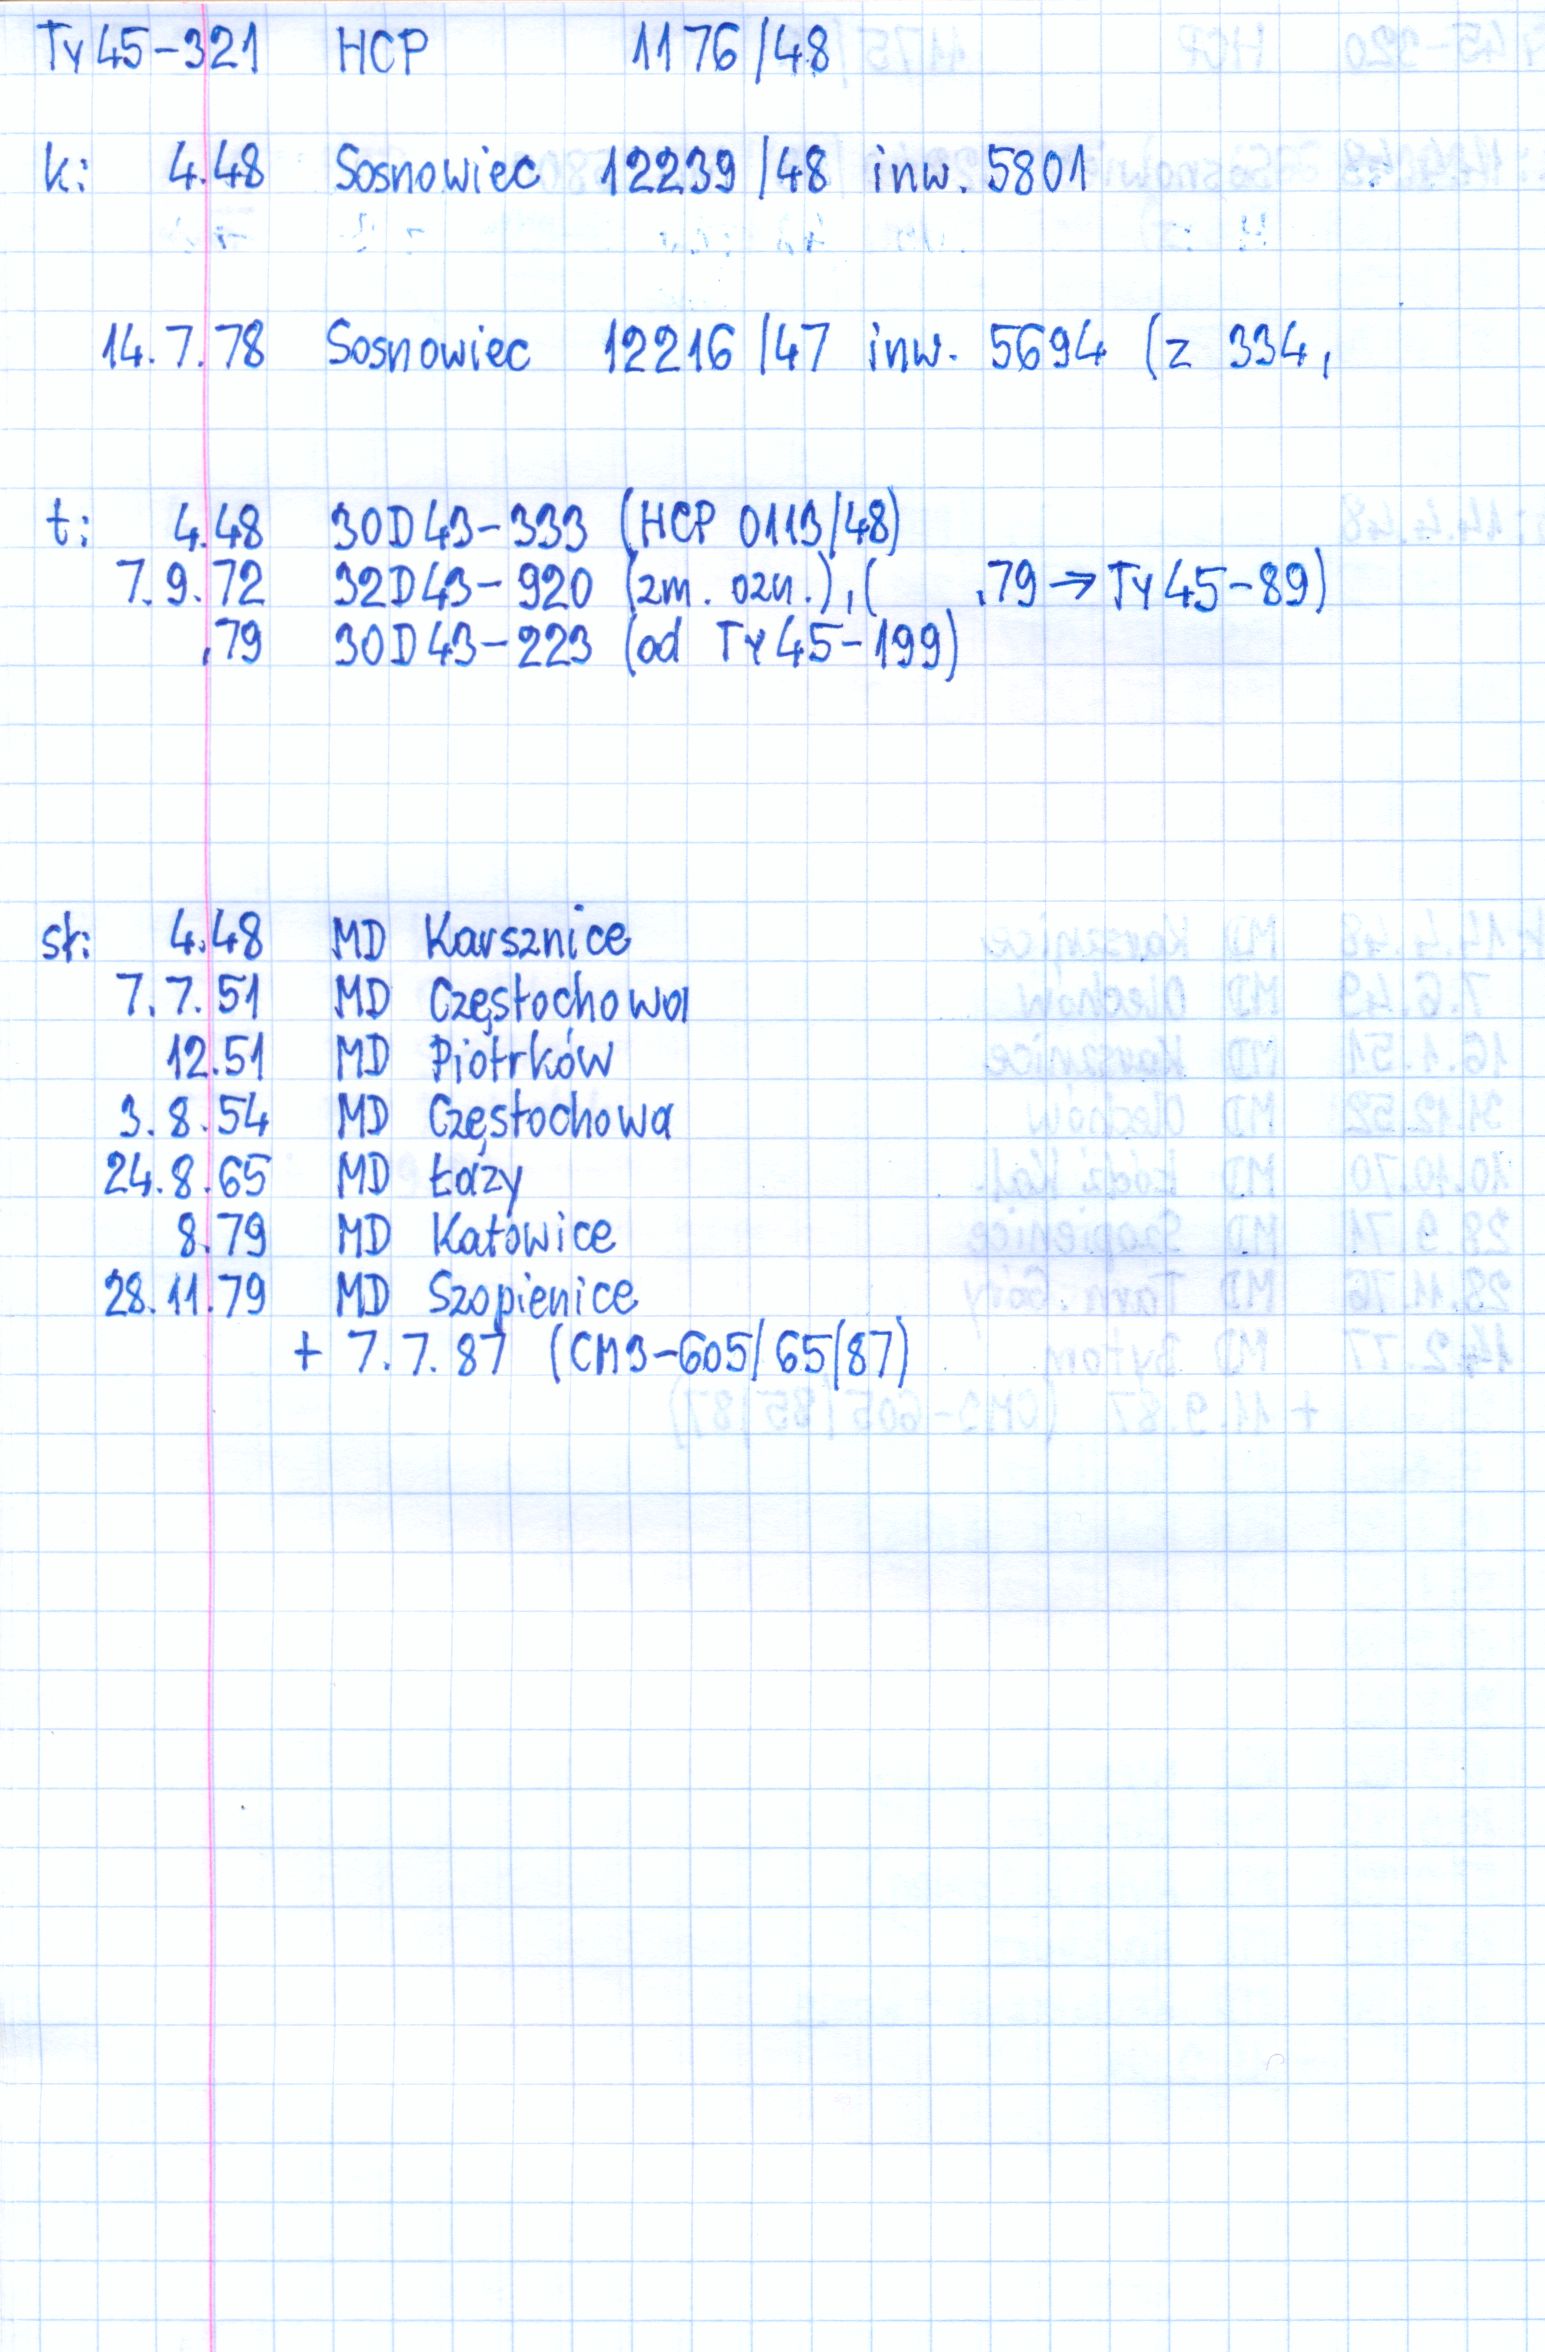 Ty45-321 HCP 1176/48
k: 4.48 Sosnowiec 12239/48 inw. 5801
14.7.78 Sosnowiec 12216/47 inw. 5694 (z 334,
t: 4.48 30D43-333 (HCP 0113/48)
7.9.72 32D43-920 (zm. ozn.), ( .79 → Ty45-89)
.79 30D43-223 (od Ty45-199)
st: 4.48 MD Karsznice
7.7.51 MD Częstochowa
12.51 MD Piotrków
3.8.54 MD Częstochowa
24.8.65 MD Łazy
8.79 MD Katowice
28.11.79 MD Szopienice
+ 7.7.87 (CM3-605/65/87)